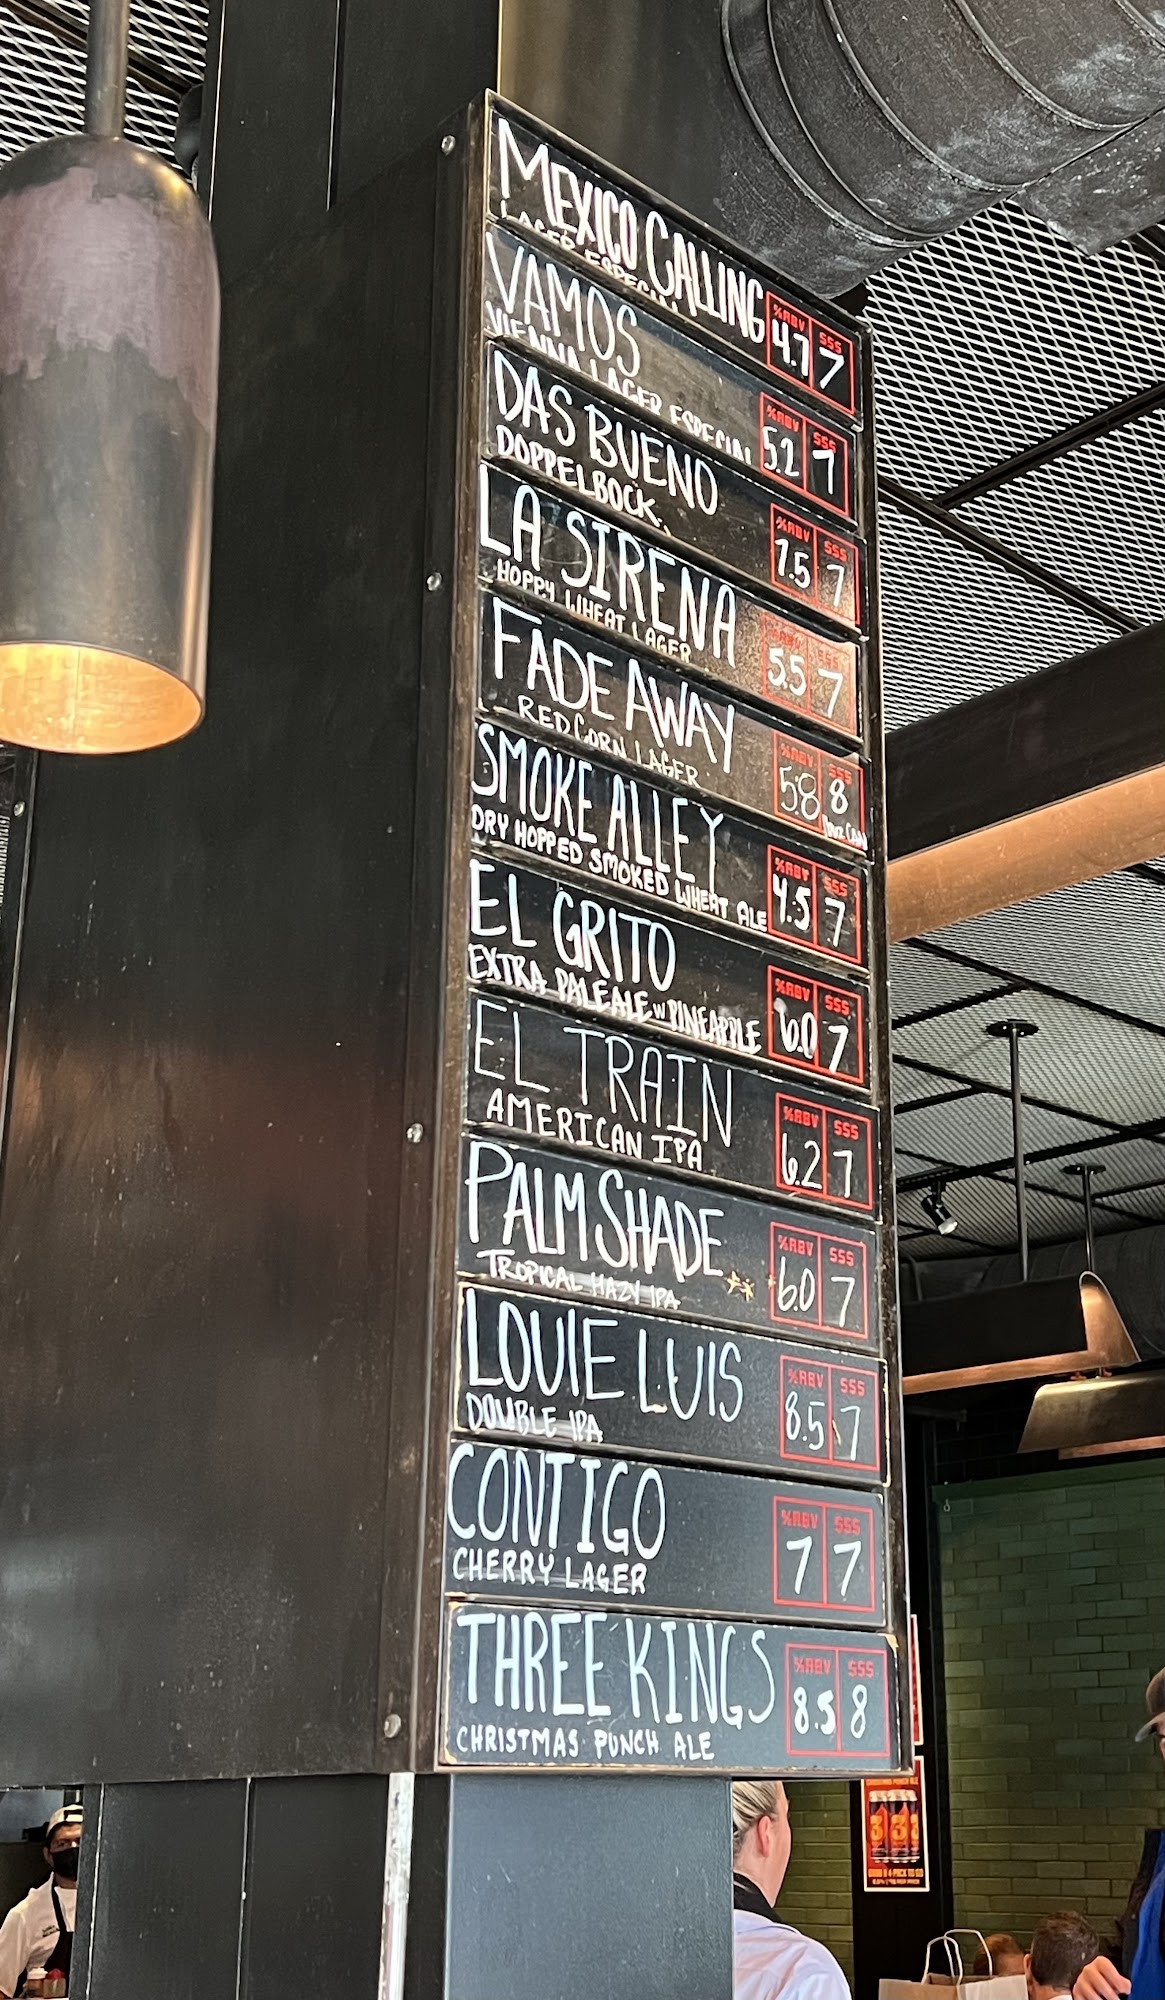 MEXICO CALLING
LAGER ESPECIAL
%ABV $$$
4.7 7
VAMOS
VIENNA LAGER ESPECIAL
%ABV $$$
5.2 7
DAS BUENO
DOPPELBOCK
%ABV $$$
7.5 7
LA SIRENA
HOPPY WHEAT LAGER
%ABV $$$
5.5 7
FADE AWAY
RED CORN LAGER
%ABV $$$
5.8 8
CAN
SMOKE ALLEY
DRY HOPPED SMOKED WHEAT ALE
%ABV $$$
4.5 7
EL GRITO
EXTRA PALE ALE W PINEAPPLE
%ABV $$$
6.0 7
EL TRAIN
AMERICAN IPA
%ABV $$$
6.2 7
PALM SHADE
TROPICAL HAZY IPA
%ABV $$$
6.0 7
LOUIE LUIS
DOUBLE IPA
%ABV $$$
8.5 7
CONTIGO
CHERRY LAGER
%ABV $$$
7 7
THREE KINGS
CHRISTMAS PUNCH ALE
%ABV $$$
8.5 8
CHRISTMAS PUNCH ALE
3 3 3
GRAB A 4-PACK TO GO